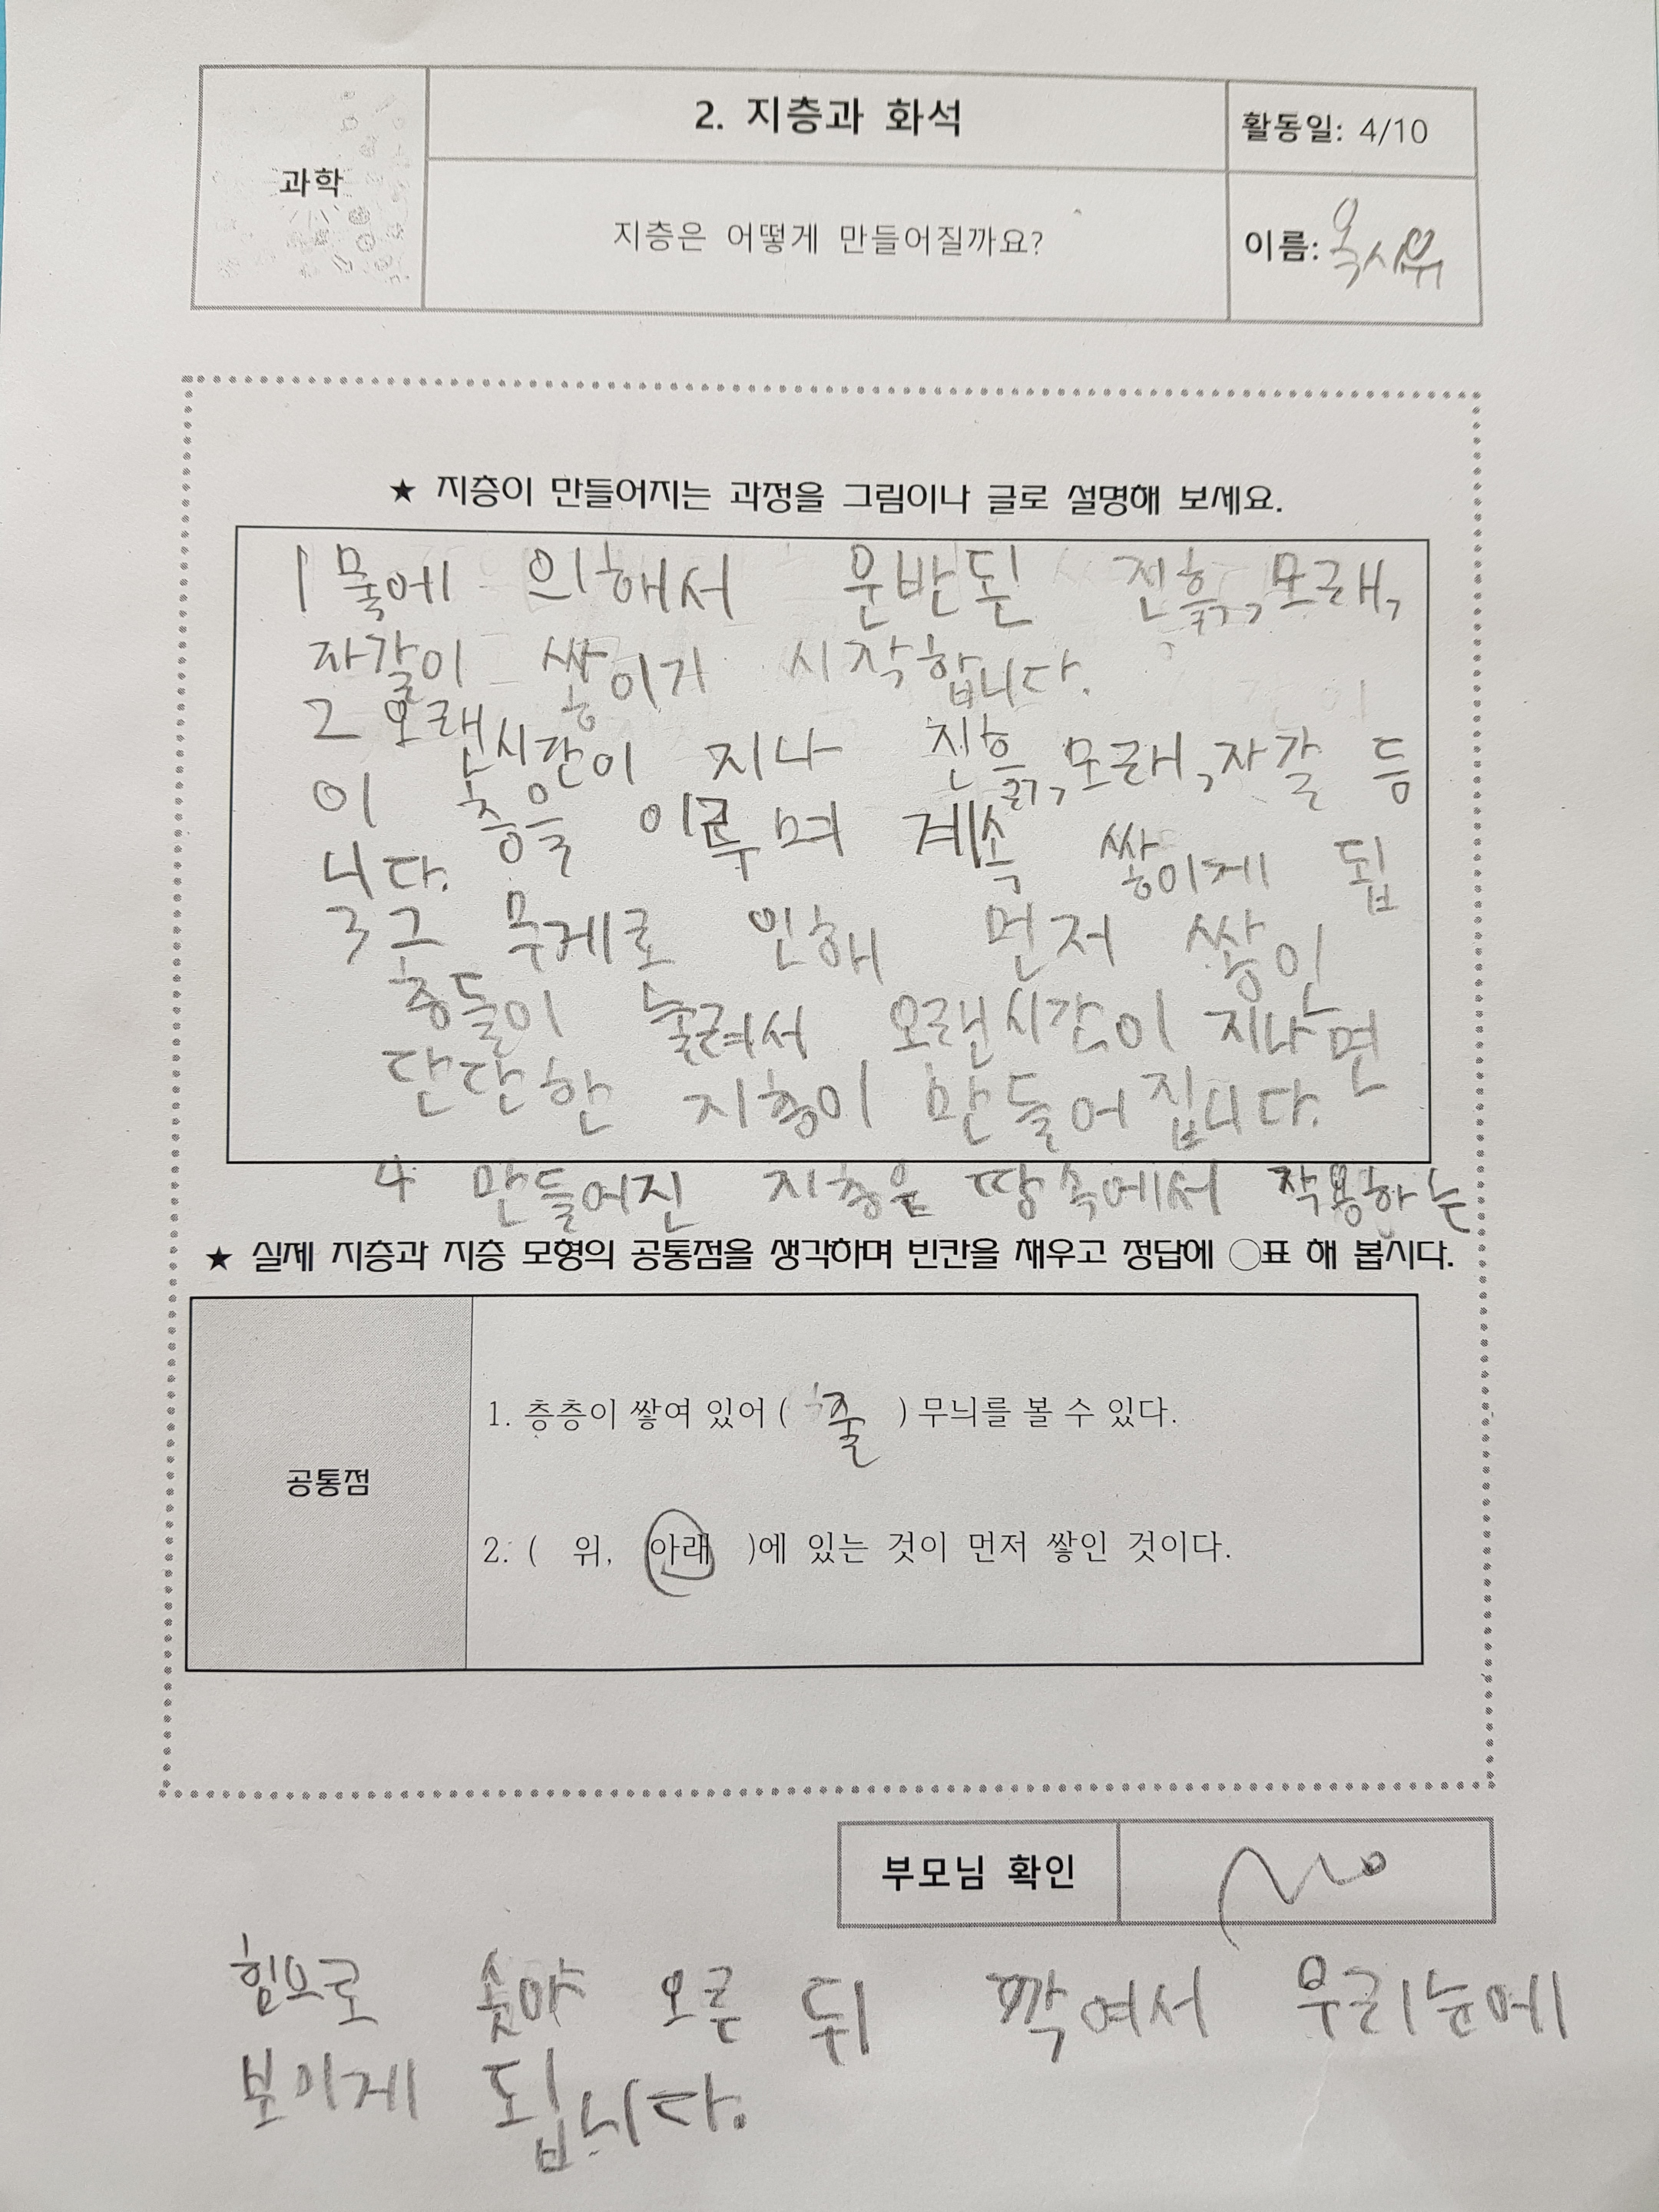 과학
2. 지층과 화석
활동일: 4/10
지층은 어떻게 만들어질까요?
이름:
★ 지층이 만들어지는 과정을 그림이나 글로 설명해 보세요.
1 물에 의해서 운반된 진흙, 모래,
자갈이 쌓이기 시작합니다.
2 오랜시간이 지나 진흙, 모래, 자갈 등
이 층을 이루며 계속 쌓이게 됩
니다.
3 그 무게로 인해 먼저 쌓인
층들이 눌려서 오랜시간이 지나면
단단한 지층이 만들어집니다.
4 만들어진 지층은 땅속에서 작용하는
★ 실제 지층과 지층 모형의 공통점을 생각하며 빈칸을 채우고 정답에 ○표 해 봅시다.
공통점
1. 층층이 쌓여 있어 ( 줄 ) 무늬를 볼 수 있다.
2. ( 위, 아래 )에 있는 것이 먼저 쌓인 것이다.
부모님 확인
힘으로 솟아 오른 뒤 깍여서 우리눈에
보이게 됩니다.